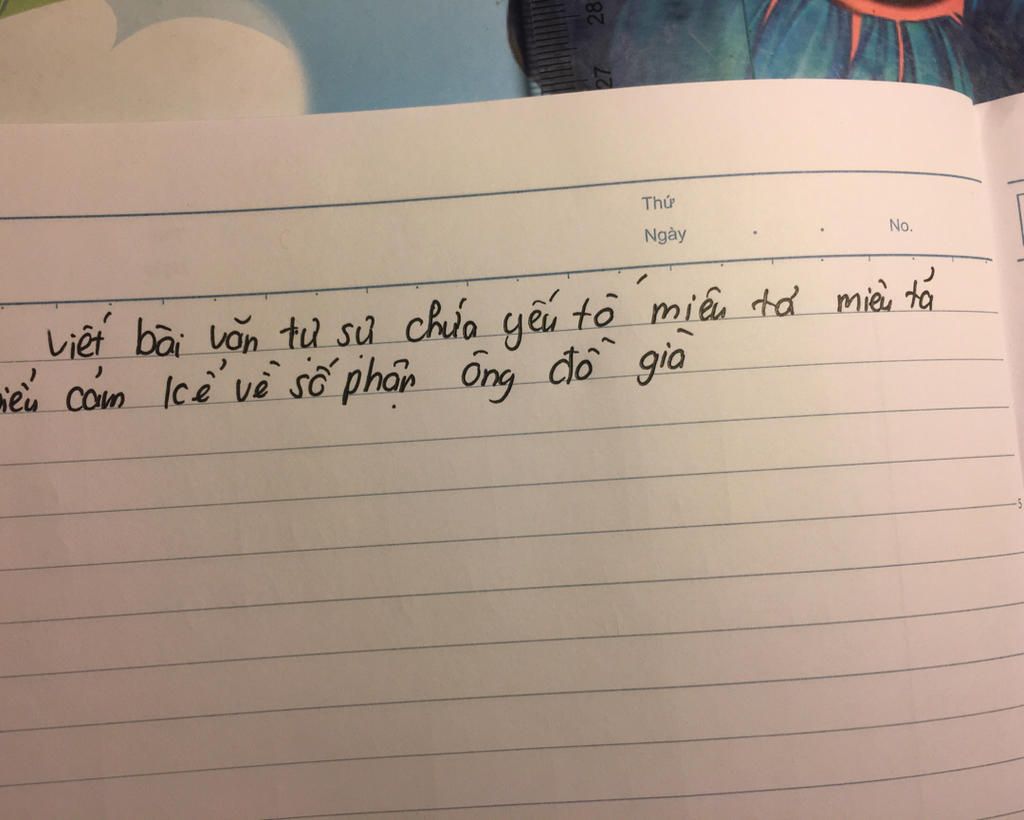 28
27
Thứ
Ngày . . No.
Viết bài văn tự sự chứa yếu tố miêu tả miêu tả
cảm kể về số phận ông đồ già
5